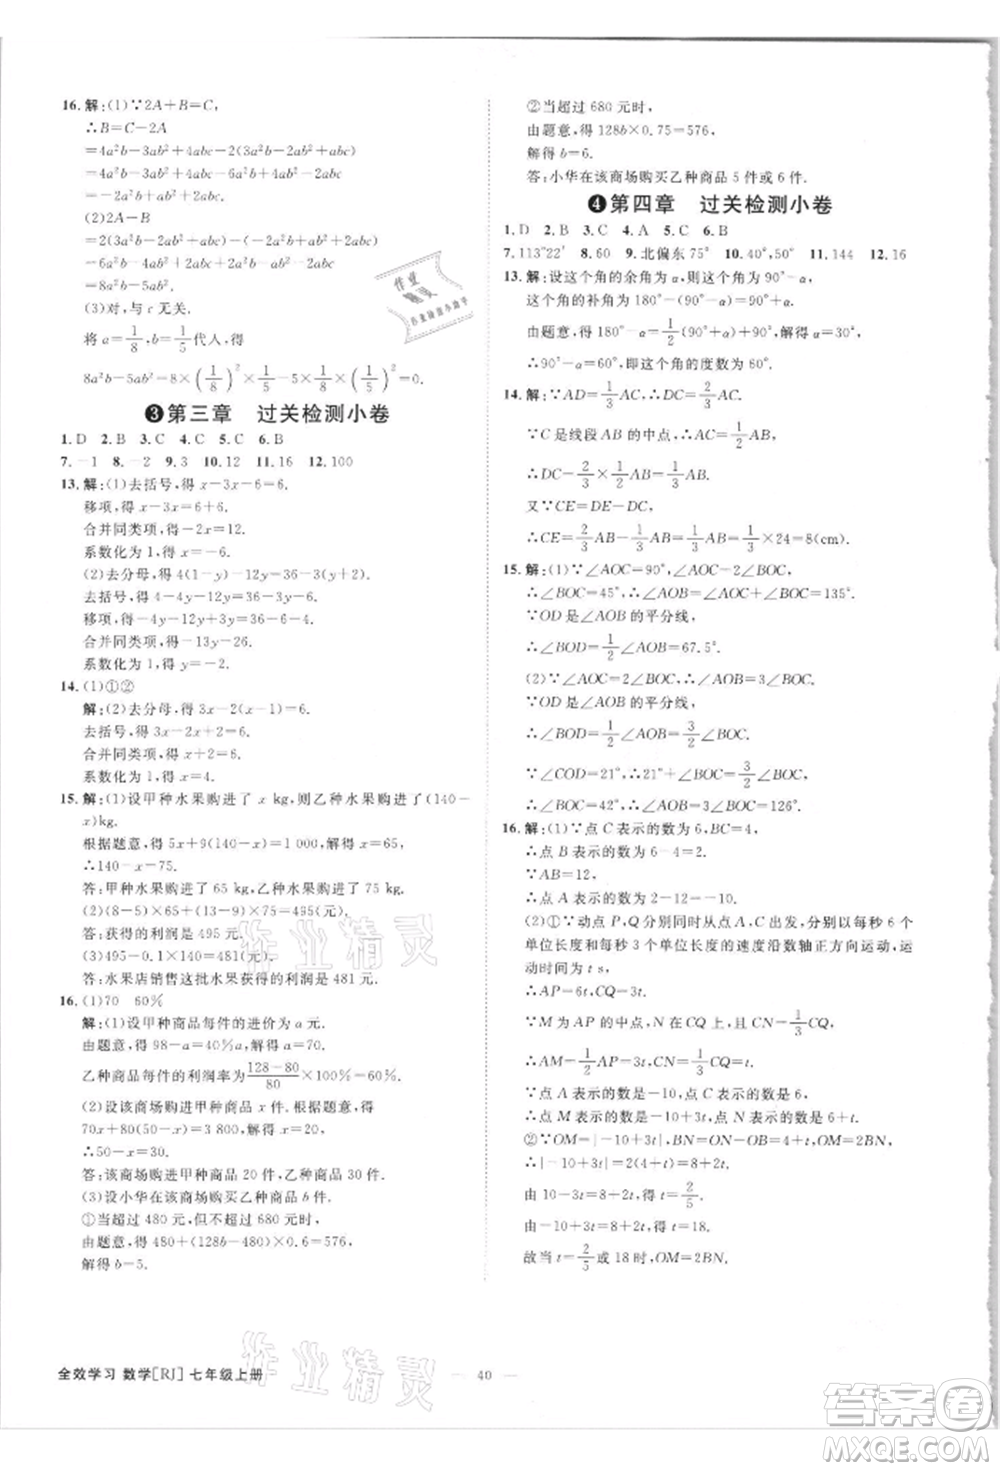 16. 解:(1)∵2A+B=C,
∴B=C-2A
=4a²b-3ab²+4abc-2(3a²b-2ab²+abc)
=4a²b-3ab²+4abc-6a²b+4ab²-2abc
=-2a²b+ab²+2abc.
(2)2A-B
=2(3a²b-2ab²+abc)-(-2a²b+ab²+2abc)
=6a²b-4ab²+2abc+2a²b-ab²-2abc
=8a²b-5ab².
(3)对,与 c 无关.
将 a=1/8, b=1/5代人,得
8a²b-5ab²=8×(1/8)²×1/5-5×1/8×(1/5)²=0.
❸第三章 过关检测小卷
1. D 2. B 3. C 4. C 5. C 6. B
7. -1 8. -2 9. 3 10. 12 11. 16 12. 100
13. 解:(1)去括号,得 x-3x-6=6.
移项,得 x-3x=6+6.
合并同类项,得-2x=12.
系数化为 1,得 x=-6.
(2)去分母,得 4(1-y)-12y=36-3(y+2).
去括号,得 4-4y-12y=36-3y-6.
移项,得-4y-12y+3y=36-6-4.
合并同类项,得-13y=26.
系数化为 1,得 y=-2.
14. (1)①②
解:(2)去分母,得 3x-2(x-1)=6.
去括号,得 3x-2x+2=6.
合并同类项,得 x+2=6.
系数化为 1,得 x=4.
15. 解:(1)设甲种水果购进了 x kg,则乙种水果购进了(140-
x)kg.
根据题意,得 5x+9(140-x)=1 000,解得 x=65,
∴140-x=75.
答:甲种水果购进了 65 kg,乙种水果购进了 75 kg.
(2)(8-5)×65+(13-9)×75=495(元).
答:获得的利润为 495 元.
(3)495-0.1×140=481(元).
答:水果店销售这批水果获得的利润是 481 元.
16. (1)70 60%
解:(1)设甲种商品每件的进价为 a 元.
由题意,得 98-a=40%a,解得 a=70.
乙种商品每件的利润率为128-80/80×100%=60%.
(2)设该商场购进甲种商品 x 件.根据题意,得
70x+80(50-x)=3 800,解得 x=20,
∴50-x=30.
答:该商场购进甲种商品 20 件,乙种商品 30 件.
(3)设小华在该商场购买乙种商品 b 件.
①当超过 480 元,但不超过 680 元时,
由题意,得 480+(128b-480)×0.6=576,
解得 b=5.
②当超过 680 元时,
由题意,得 128b×0.75=576,
解得 b=6.
答:小华在该商场购买乙种商品 5 件或 6 件.
❹第四章 过关检测小卷
1. D 2. B 3. C 4. A 5. C 6. B
7. 113°22′ 8. 60 9. 北偏东 75° 10. 40°,50° 11. 144 12. 16
13. 解:设这个角的余角为 α,则这个角为 90°-α,
这个角的补角为 180°-(90°-α)=90°+α.
由题意,得 α=1/3[180°-(90°+α)]+10°,解得 α=30°,
∴90°-α=60°,即这个角的度数为 60°.
14. 解:∵AD=1/3AC,∴DC=2/3AC.
∵C 是线段 AB 的中点,∴AC=1/2AB,
∴DC=2/3×1/2AB=1/3AB.
又∵CE=DE-DC,DE=2/3AB,
∴CE=2/3AB-1/3AB=1/3AB=1/3×24=8(cm).
15. 解:(1)∵∠AOC=90°,∠AOC=2∠BOC,
∴∠BOC=45°,∴∠AOB=∠AOC+∠BOC=135°.
∵OD 是∠AOB 的平分线,
∴∠BOD=1/2∠AOB=67.5°.
(2)∵∠AOC=2∠BOC,∴∠AOB=3∠BOC.
∵OD 是∠AOB 的平分线,
∴∠BOD=1/2∠AOB=3/2∠BOC.
∵∠COD=21°,∴21°+∠BOC=3/2∠BOC,
∴∠BOC=42°,∴∠AOB=3∠BOC=126°.
16. 解:(1)∵点 C 表示的数为 6,BC=4,
∴点 B 表示的数为 6-4=2.
∵AB=12,
∴点 A 表示的数为 2-12=-10.
(2)①∵动点 P,Q 分别同时从点 A,C 出发,分别以每秒 6 个
单位长度和每秒 3 个单位长度的速度沿数轴正方向运动,运
动时间为 t s,
∴AP=6t,CQ=3t.
∵M 为 AP 的中点,N 在 CQ 上,且 CN=1/3CQ,
∴AM=1/2AP=3t,CN=1/3CQ=t.
∵点 A 表示的数是-10,点 C 表示的数是 6,
∴点 M 表示的数是-10+3t,点 N 表示的数是 6+t.
②∵OM=|-10+3t|,BN=ON-OB=4+t,OM=2BN,
∴|-10+3t|=2(4+t)=8+2t.
由 10-3t=8+2t,得 t=2/5;
由-10+3t=8+2t,得 t=18.
故当 t=2/5或 18 时,OM=2BN.
全效学习 数学[RJ]七年级上册
— 40 —
作业精灵
作业精灵
作业
精灵
答案卷
MXQE.COM